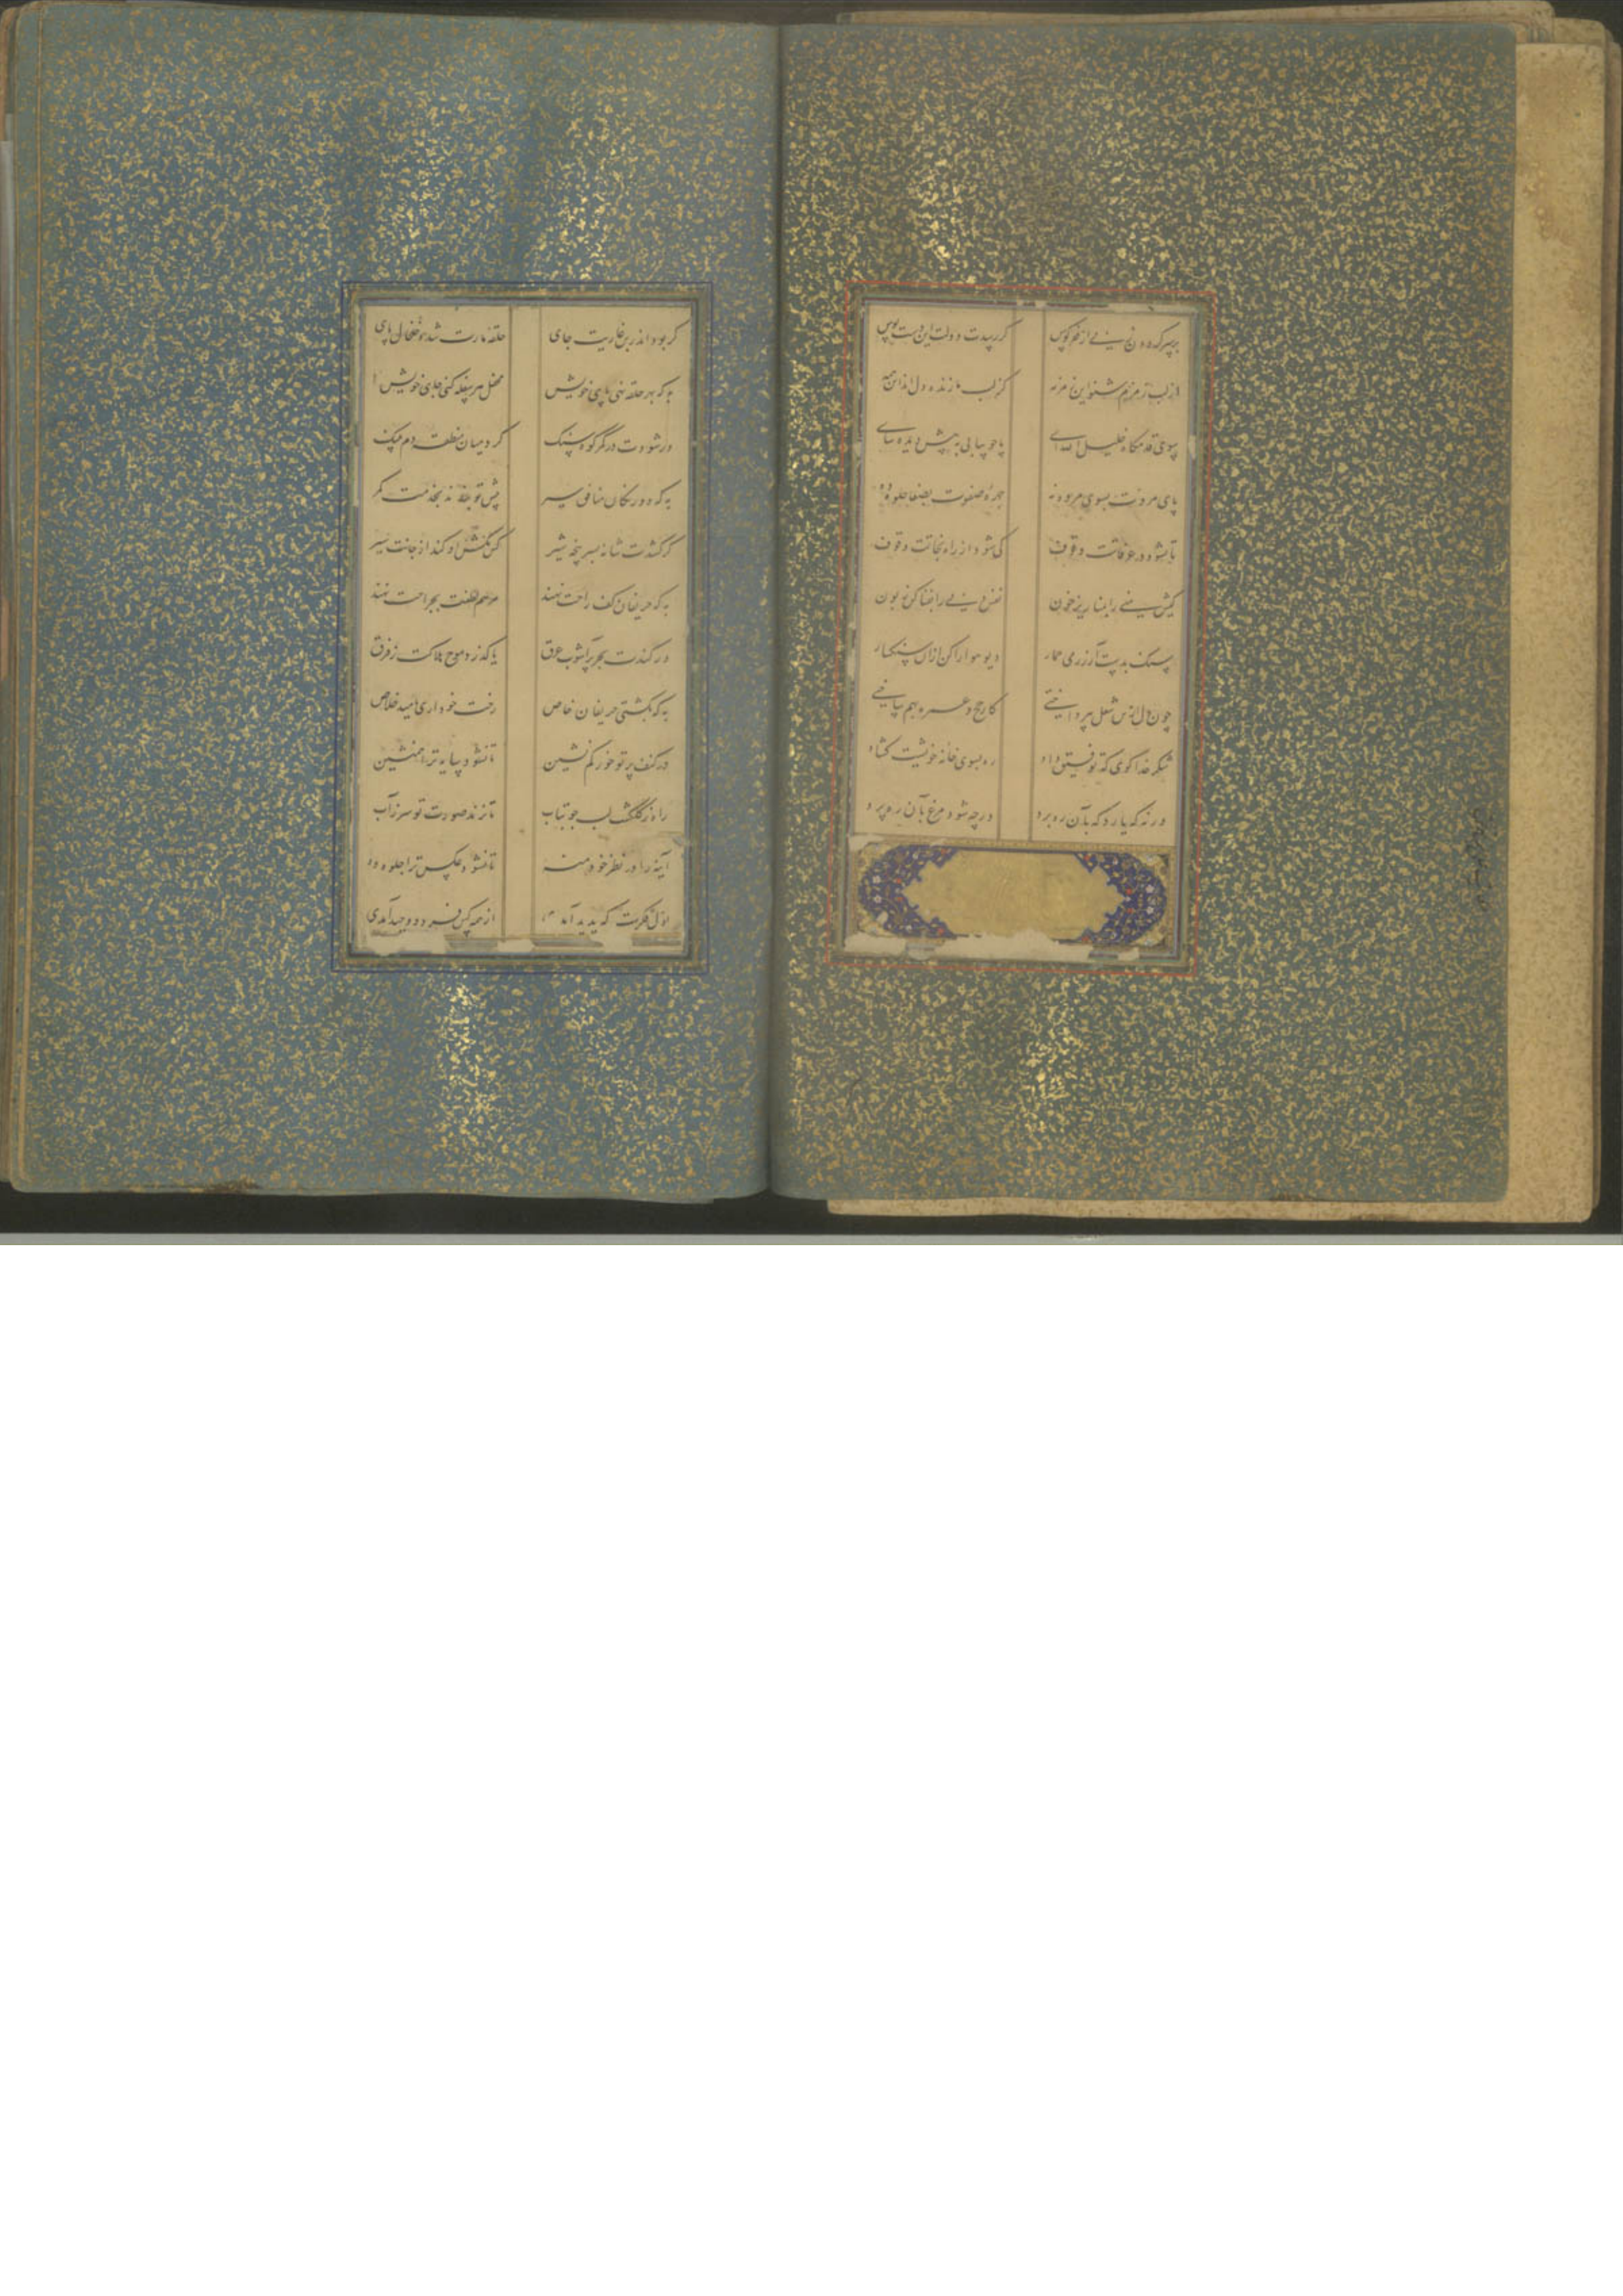 بر سپر گردون زنی از فخر کوس گر رسدت دولت این دست بوس
از لب زمزم شنو این زمزمه کز لب ما زنده دل اند این همه
سوی قدمگاه خلیل الله آی پا چو بیابی به پیش دیده سای
پای مروت بسوی مروه نه چهره صفوت بصفا جلوه ده
تا نشود در عرفاتت وقوف کی شود از راه نجاتت وقوف
کبش منی را بمنا ریز خون نفس دنی را بفنا کن زبون
سنگ بدست آر ز رمی جمار دیو هوا را کن ازان سنگسار
چون دل ازین شغل بپرداختی کار حج و عمره بهم ساختی
شکر خدا گوی که توفیق داد ره بسوی خانه خویشت گشاد
ورنه که یارد که بآن ره برد ور چه شود مرغ بآن ره پرد
گر بود اندر بن غاریت جای حلقه مارت شده خلخال پای
به که بهر حلقه نهی پای خویش محفل هر سفله کنی جای خویش
ور شودت در کمر کوه سنگ گرد میان منطقه دم پلنگ
به که دورنگان منافق سیر پیش تو بندند بخدمت کمر
گر کشدت شانه بسر پنجه شیر او کند از جانت سیر
به که حریفان کف راحت نهند مرهم لطفت بجراحت نهند
در کندت بحر پر آشوب غرق پا گذرد موج هلاکت ز فرق
به که بکشتی حریفان خاص رخت خود آری بامید خلاص
در کنف پرتو خور کم نشین تا نشود سایه ترا همنشین
راه ز گلگشت لب جو بتاب تا نزند صورت تو سر ز آب
آینه را در نظر خود منه تا نشود عکس ترا جلوه ده
اول فکرت که پدید آمدی از همه کس فرد و وحید آمدی